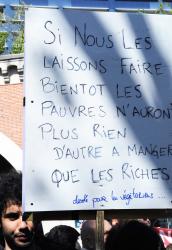 SI NOUS LES
LAISSONS FAIRE
BIENTOT LES
PAUVRES N'AURONT
PLUS RIEN
D'AUTRE A MANGER
QUE LES RICHES
désolé pour les végétariens...